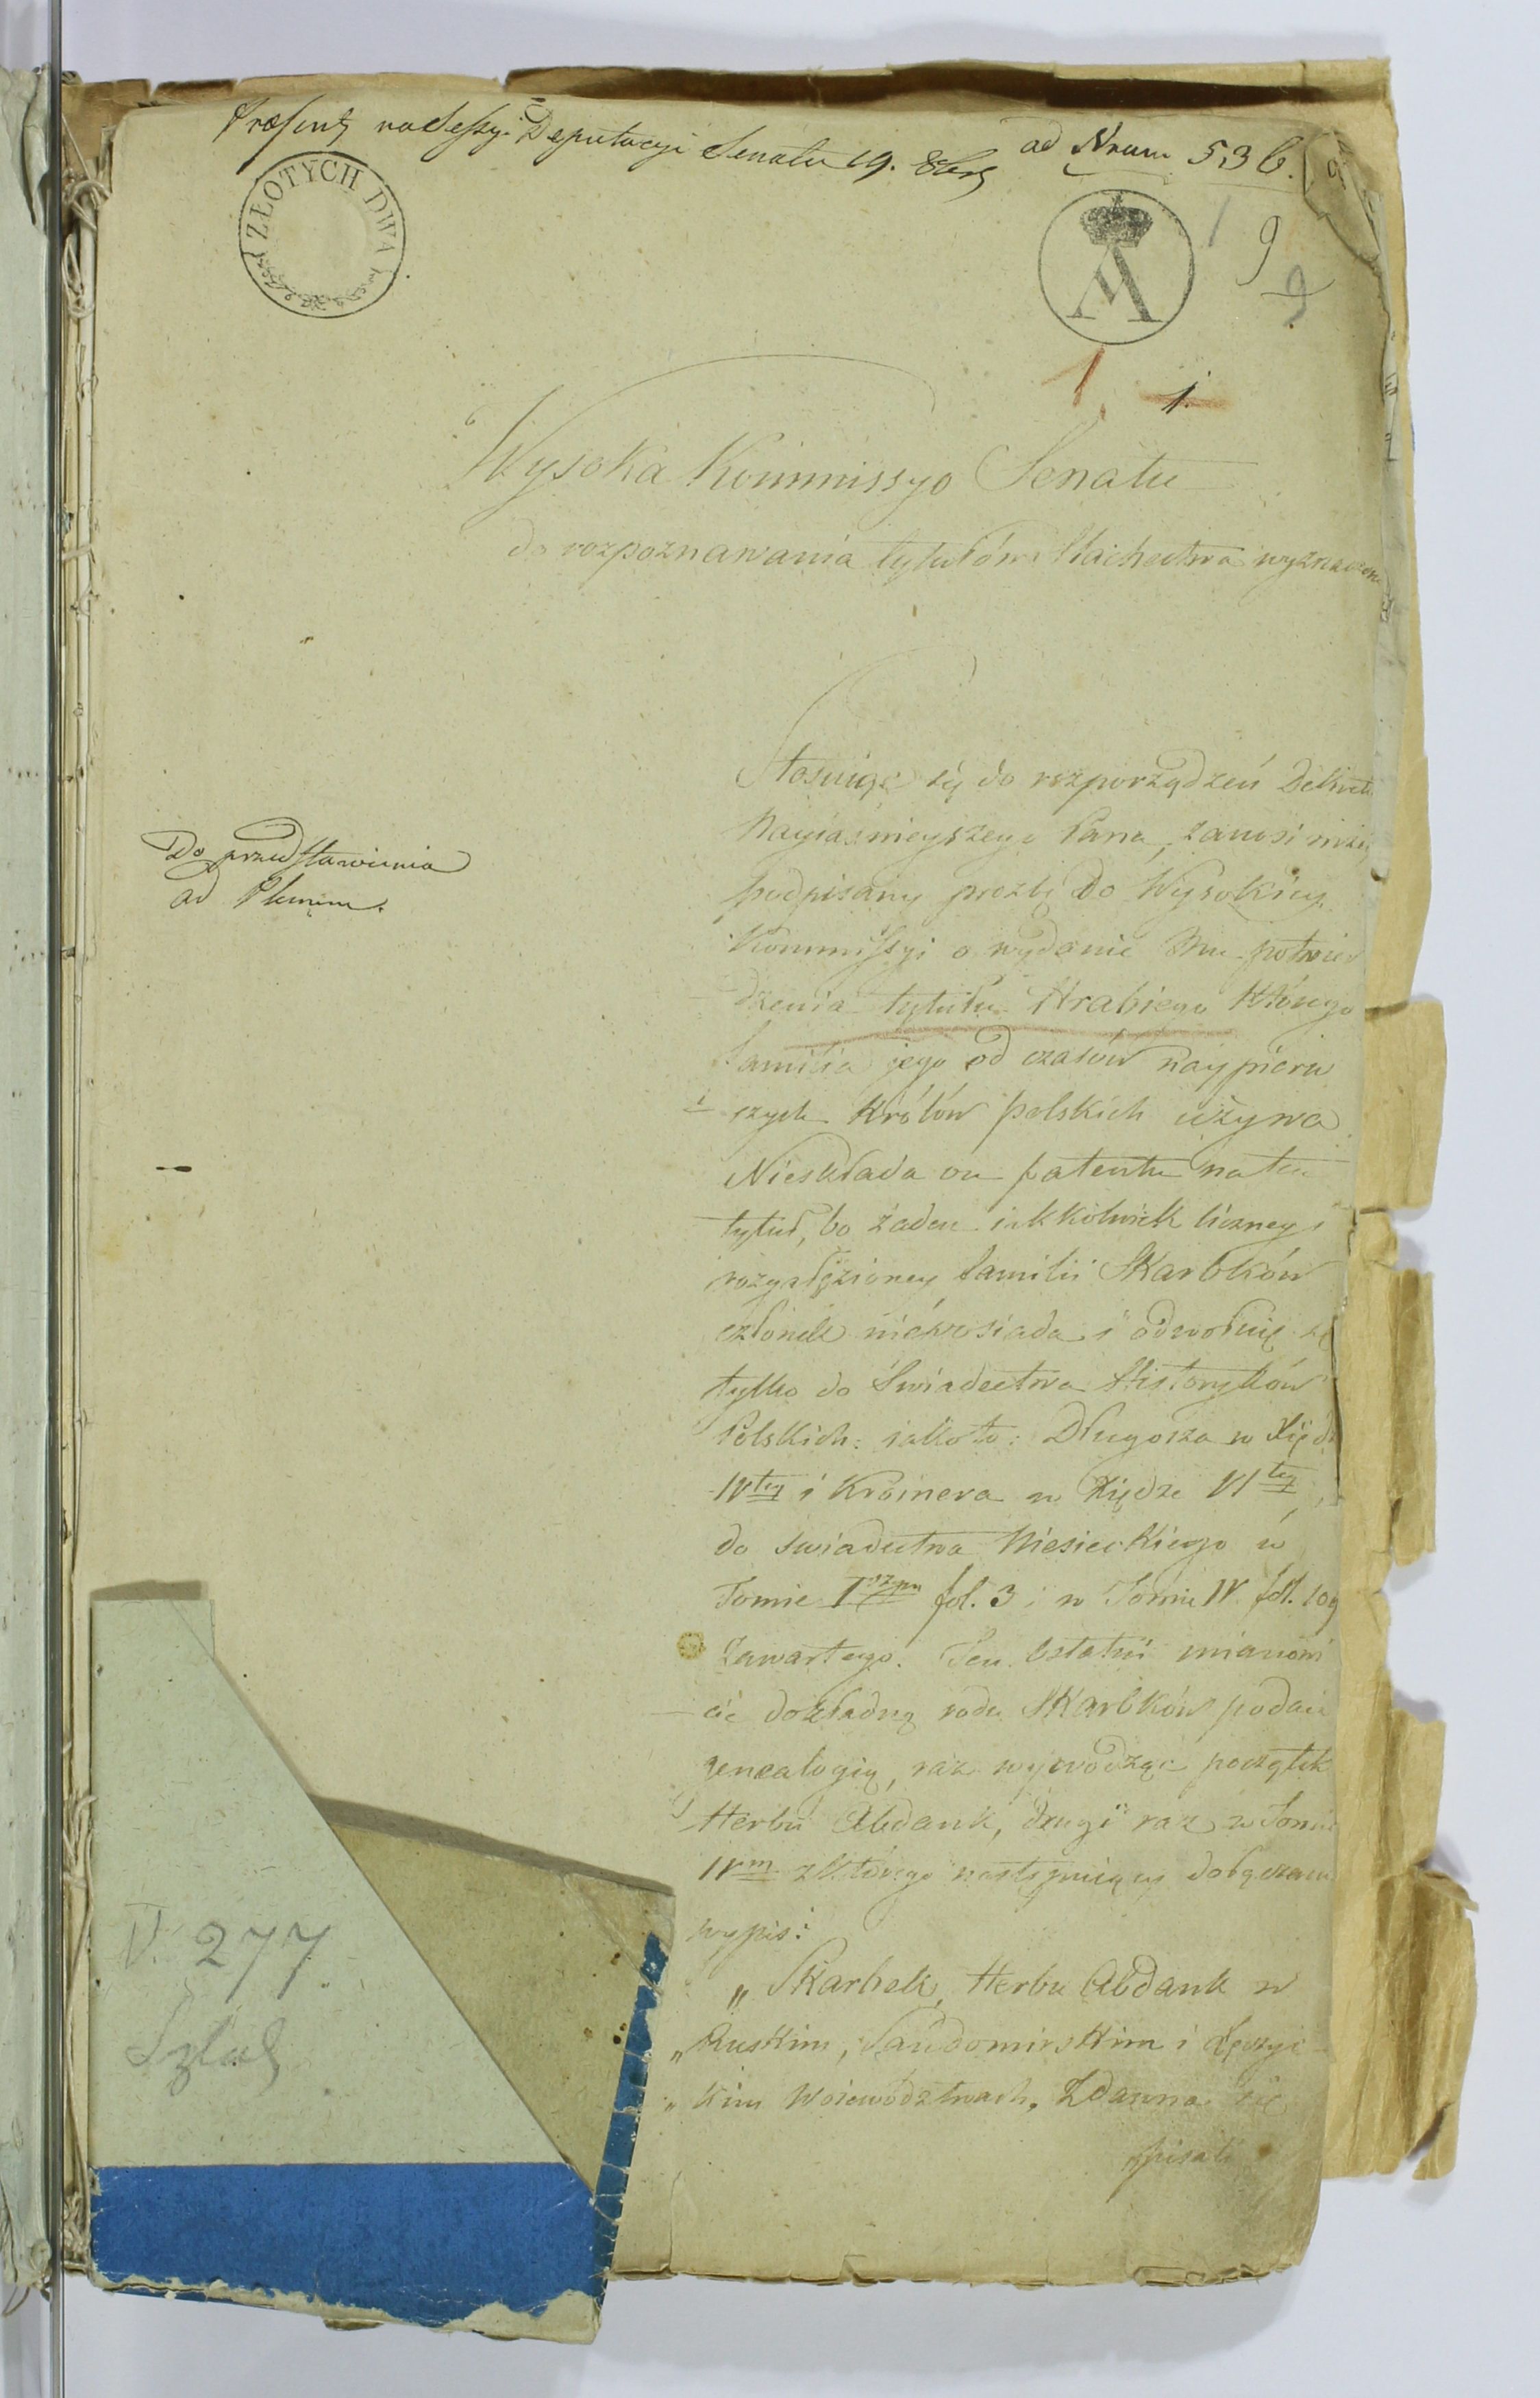 Præsent. na Sessyi Deputacyi Senatu 19. 8bra
ad Nrum 536.
ZŁOTYCH DWA
9
1
1.
Wysoka Kommissyo Senatu
do rozpoznawania tytułów Szlachectwa wyznaczona
Stosuiąc się do rozporządzeń Dekretu
Nayiasnieyszego Pana, zanosi niżey
podpisany prozbę do Wysokiey
Kommissyi o wydanie mu potwier
dzenia tytułu Hrabiego którego
familia jego od czasów naypierw
szych Królów polskich używa
Do przedstawienia
ad Plenum.
Nieskłada on patentu na ten
tytuł, bo żaden iakkolwiek liczney i
rozgałęzioney familii Skarbków
członek nieposiada i odwołuię się
tylko do Świadectwa Historyków
Polskich: iakoto: Długosza w Xiędze
IVtey i Kromera w Xiędze VItey,
do swiadectwa Niesieckiego w
Tomie Iszym fol. 3 i w Tomie IV. fol. 109
zawartego. Ten ostatni mianowi
cie dokładną rodu Skarbków podaie
genealogią, raz wywodząc początek
Herbu Abdank, drugi raz w Tomie
IVm z którego następuiący dołączam
wypis:
„ Skarbek, Herbu Abdank w
„ Ruskim, Sandomirskim i Łęczyc-
„ kim Woiewództwach, Zdawna się
pisali
V. 277
Szlach